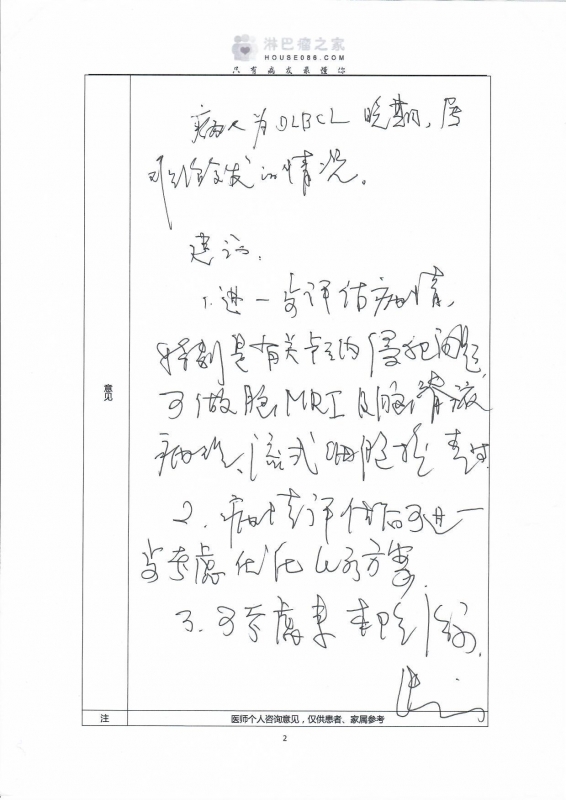 淋巴瘤之家
HOUSE086.COM
只有病友最懂你
病人为DLBCL晚期,属
的情况。
建议:
1.进一步评估病情,
特别是有关颅内侵犯问题,
可做脑MRI及脑脊液
病理、流式细胞检查
2.病情评估后可进一
步考虑优化化疗方案。
3.可考虑来
意见
注
医师个人咨询意见,仅供患者、家属参考
2